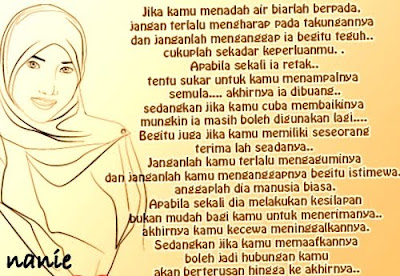 Jika kamu menadah air biarlah berpada,
jangan terlalu mengharap pada takungannya
dan janganlah menganggap ia begitu teguh..
cukuplah sekadar keperluanmu. .
Apabila sekali ia retak..
tentu sukar untuk kamu menampalnya
semula.... akhirnya ia dibuang..
sedangkan jika kamu cuba membaikinya
mungkin ia masih boleh digunakan lagi....
Begitu juga jika kamu memiliki seseorang
terima lah seadanya..
Janganlah kamu terlalu mengaguminya
dan janganlah kamu menganggapnya begitu istimewa.
anggaplah dia manusia biasa.
Apabila sekali dia melakukan kesilapan
bukan mudah bagi kamu untuk menerimanya..
akhirnya kamu kecewa meninggalkannya.
Sedangkan jika kamu memaafkannya
boleh jadi hubungan kamu
akan berterusan hingga ke akhirnya..
nanie